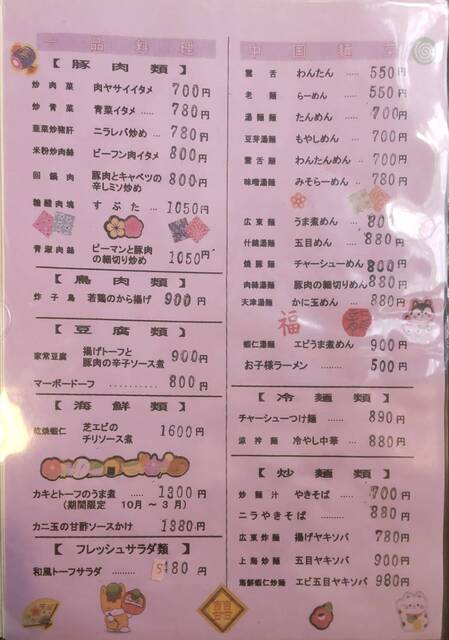 一品料理
【 豚 肉 類 】
炒肉菜 肉ヤサイイタメ 700円
炒青菜 青菜イタメ … 780円
韮菜炒猪肝 ニラレバ炒め … 780円
米粉炒肉絲 ビーフン肉イタメ 800円
回鍋肉 豚肉とキャベツの
辛しミソ炒め …… 800円
糖醋肉塊 すぶた … 1050円
青淑肉絲 ピーマンと豚肉
の細切り炒め 1050円
【 鳥 肉 類 】
炸子鳥 若鶏のから揚げ 900 円
【 豆 腐 類 】
家常豆腐 揚げトーフと
豚肉の辛子ソース煮 900円
マーボードーフ ………… 800 円
【 海 鮮 類 】
乾焼蝦仁 芝エビの
チリソース煮 1600円
カキとトーフのうま煮 …… 1300 円
(期間限定 10月 ～ 3月)
カニ玉の甘酢ソースかけ 1980円
【 フレッシュサラダ類 】
和風トーフサラダ ……… 480 円
中国麺
雲呑 わんたん …… 550円
老麺 らーめん …… 550円
湯麺麺 たんめん …… 700円
豆芽湯麺 もやしめん …… 700円
雲呑麺 わんたんめん … 780円
味噌湯麺 みそらーめん … 780円
広東麺 うま煮めん … 800円
什錦湯麺 五目めん …… 880円
焼豚麺 チャーシューめん 800円
肉絲湯麺 豚肉の細切りめん 880円
天津湯麺 かに玉めん …… 880円
福
蝦仁湯麺 エビうま煮めん 900円
お子様ラーメン ……… 500円
【 冷 麺 類 】
チャーシューつけ麺 …… 890円
涼拌麺 冷やし中華 … 880円
【 炒 麺 類 】
炒麺汁 やきそば …… 700円
ニラやきそば ……… 880円
広東炸麺 揚げヤキソバ 780円
上海炒麺 五目ヤキソバ 900円
海鮮蝦仁炒麺 エビ五目ヤキソバ 980円
囍